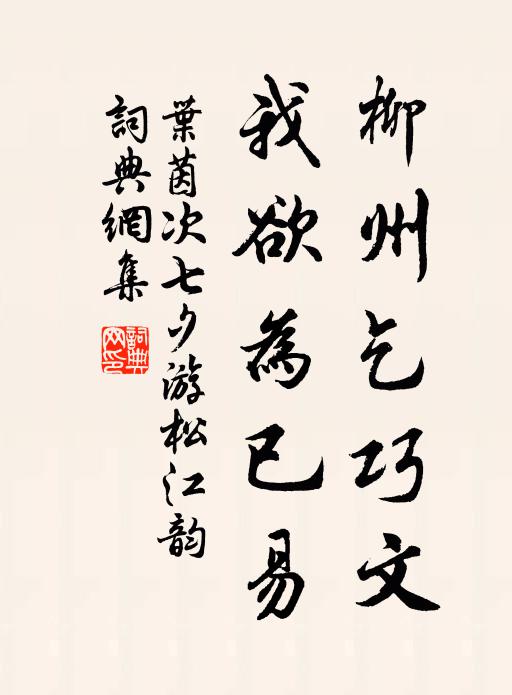 柳州乞巧文
我欲為已易
葉茵次七夕游松江韵
詞典網集
詞典網印